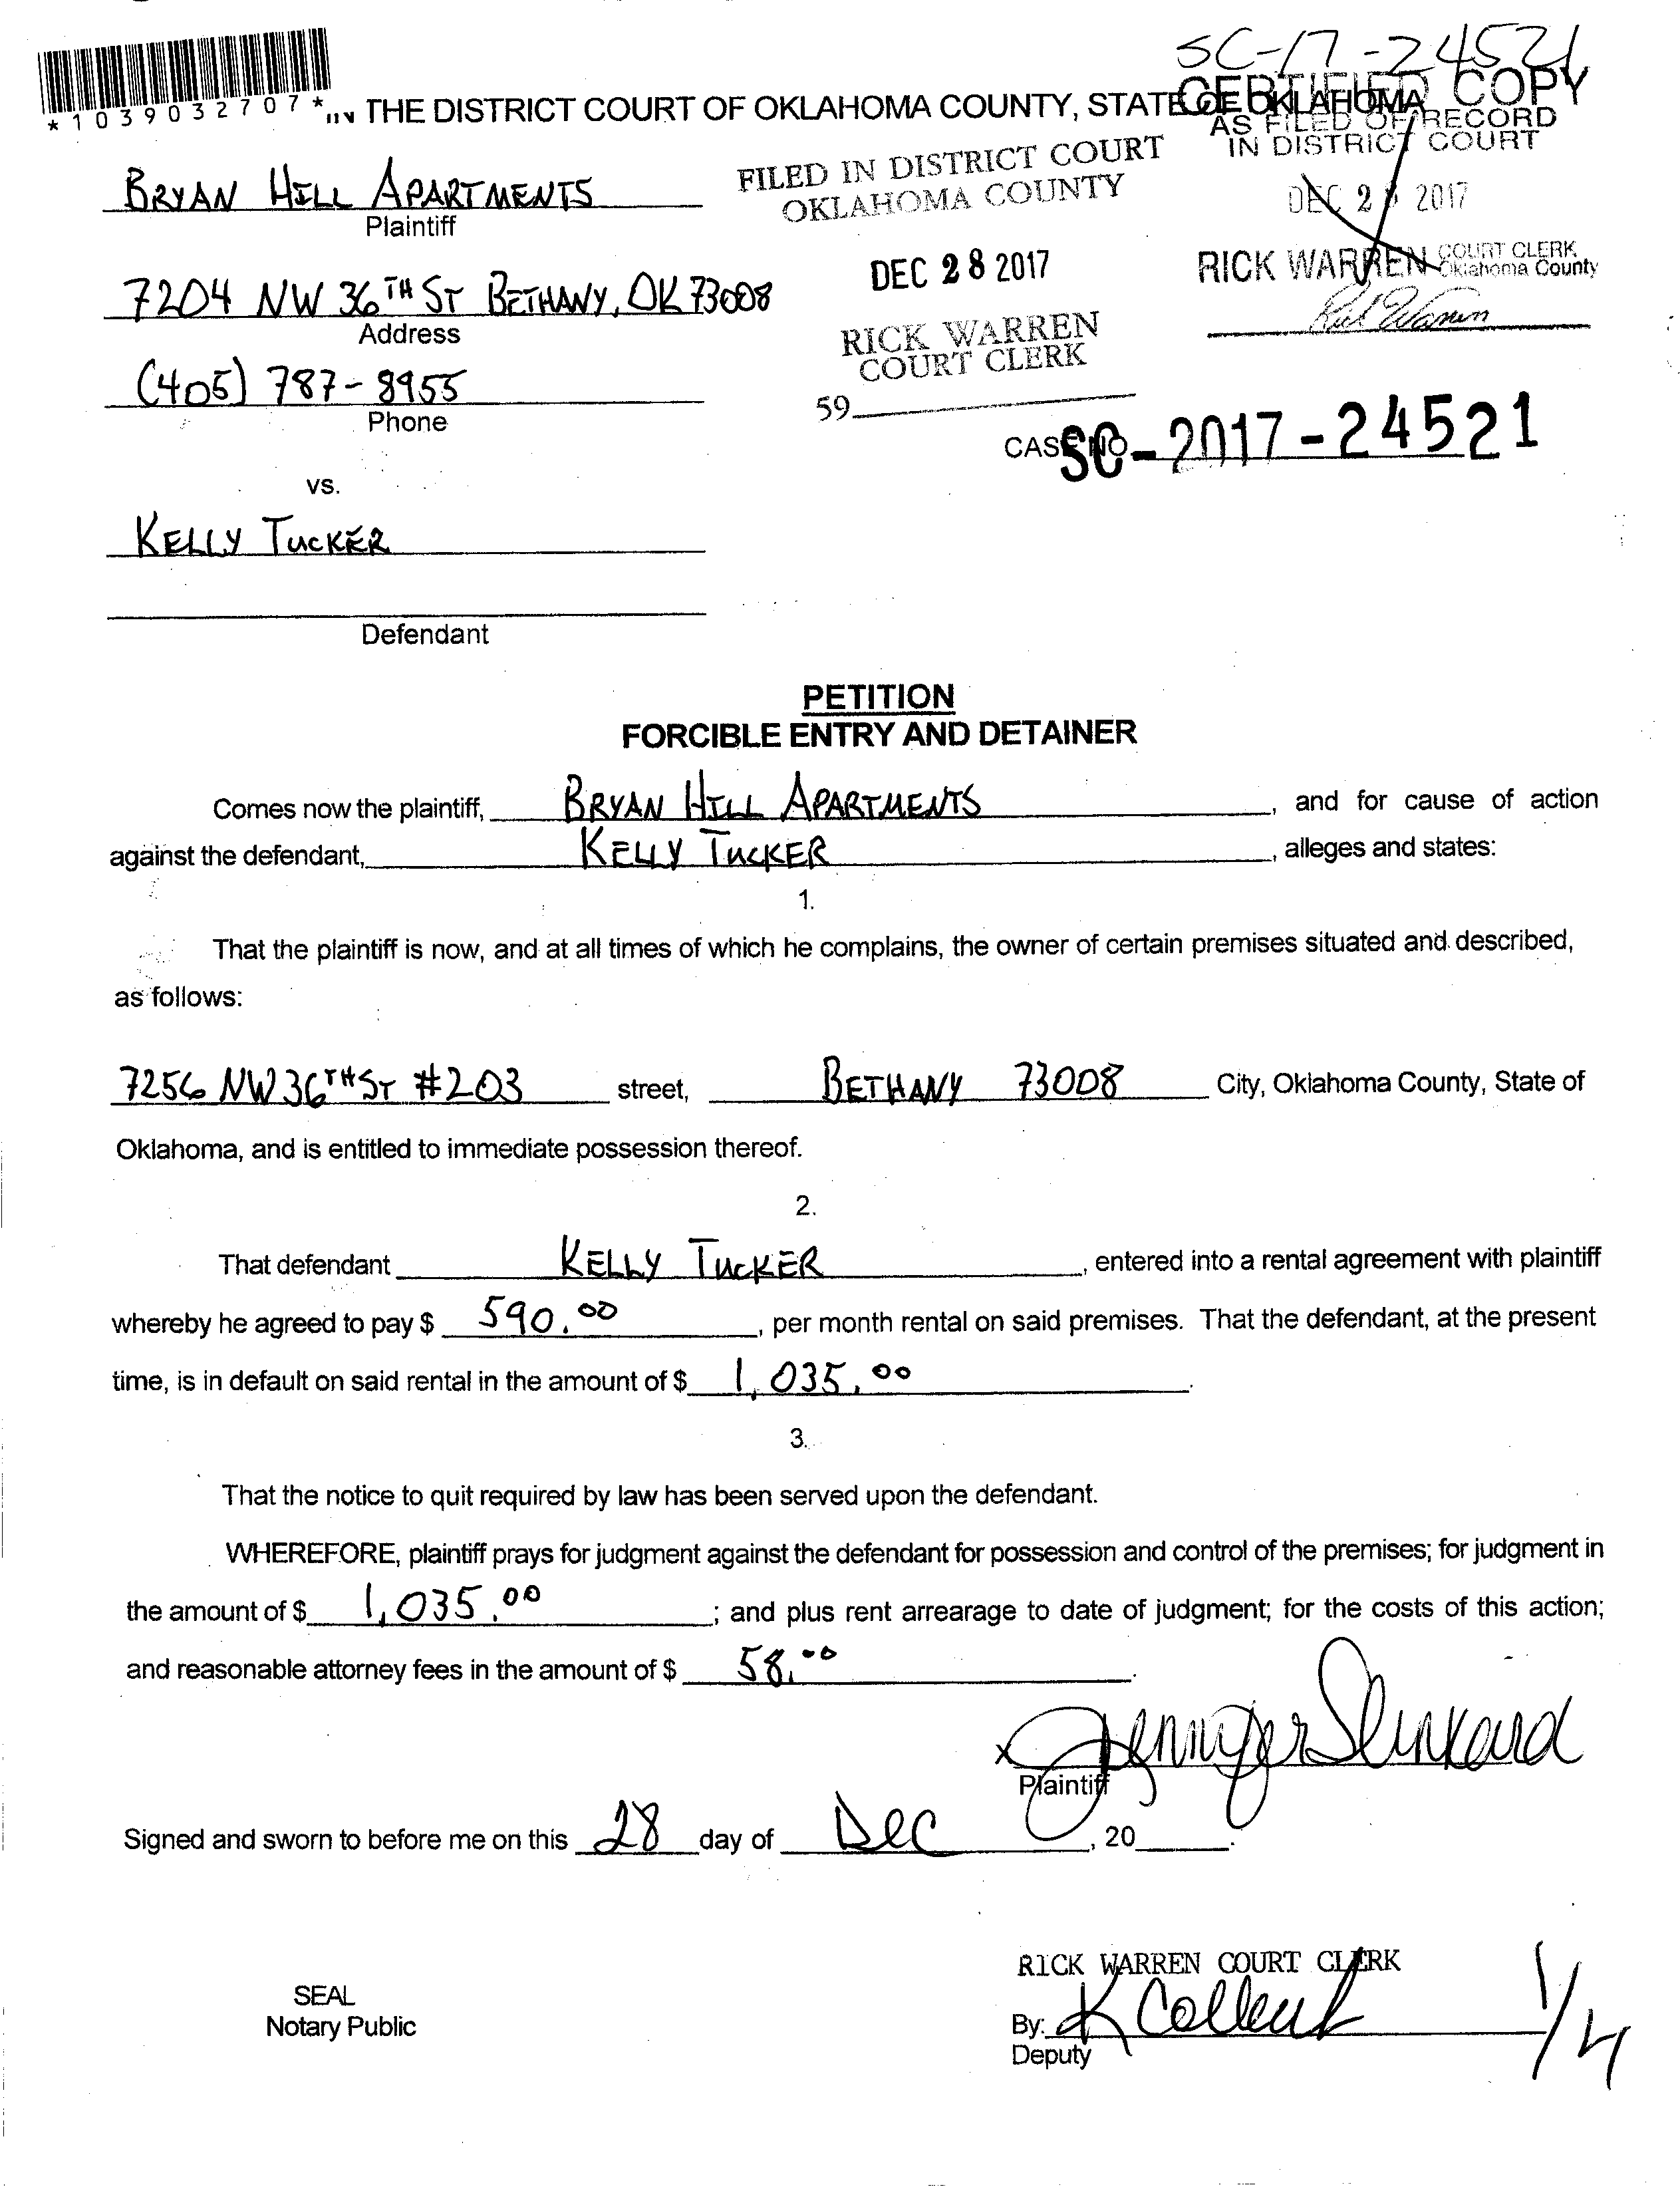 SC-17-24521
CERTIFIED COPY
AS FILED OF RECORD
IN DISTRICT COURT
DEC 28 2017
RICK WARREN COURT CLERK
Oklahoma County
Rick Warren
*1039032707*
IN THE DISTRICT COURT OF OKLAHOMA COUNTY, STATE OF OKLAHOMA
FILED IN DISTRICT COURT
OKLAHOMA COUNTY
DEC 28 2017
RICK WARREN
COURT CLERK
59
BRYAN HILL APARTMENTS
Plaintiff
7204 NW 36TH ST BETHANY, OK 73008
Address
(405) 787-8955
Phone
CASE NO. SC-2017-24521
vs.
KELLY TUCKER
Defendant
PETITION
FORCIBLE ENTRY AND DETAINER
Comes now the plaintiff, BRYAN HILL APARTMENTS, and for cause of action
against the defendant, KELLY TUCKER, alleges and states:
1.
That the plaintiff is now, and at all times of which he complains, the owner of certain premises situated and described,
as follows:
7256 NW 36TH ST #203 street, BETHANY 73008 City, Oklahoma County, State of
Oklahoma, and is entitled to immediate possession thereof.
2.
That defendant KELLY TUCKER, entered into a rental agreement with plaintiff
whereby he agreed to pay $ 590.00, per month rental on said premises. That the defendant, at the present
time, is in default on said rental in the amount of $ 1,035.00.
3.
That the notice to quit required by law has been served upon the defendant.
WHEREFORE, plaintiff prays for judgment against the defendant for possession and control of the premises; for judgment in
the amount of $ 1,035.00; and plus rent arrearage to date of judgment; for the costs of this action;
and reasonable attorney fees in the amount of $ 58.00.
x Jennifer
Plaintiff
Signed and sworn to before me on this 28 day of Dec, 20 .
RICK WARREN COURT CLERK
SEAL
Notary Public
By: K
Deputy
1/4